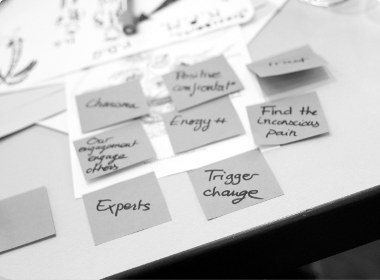 Charisma
Positive
confrontat°
Trust
Our
engagement
engage
others
Energy ++
Find the
inconscious
pain
Experts
Trigger
change